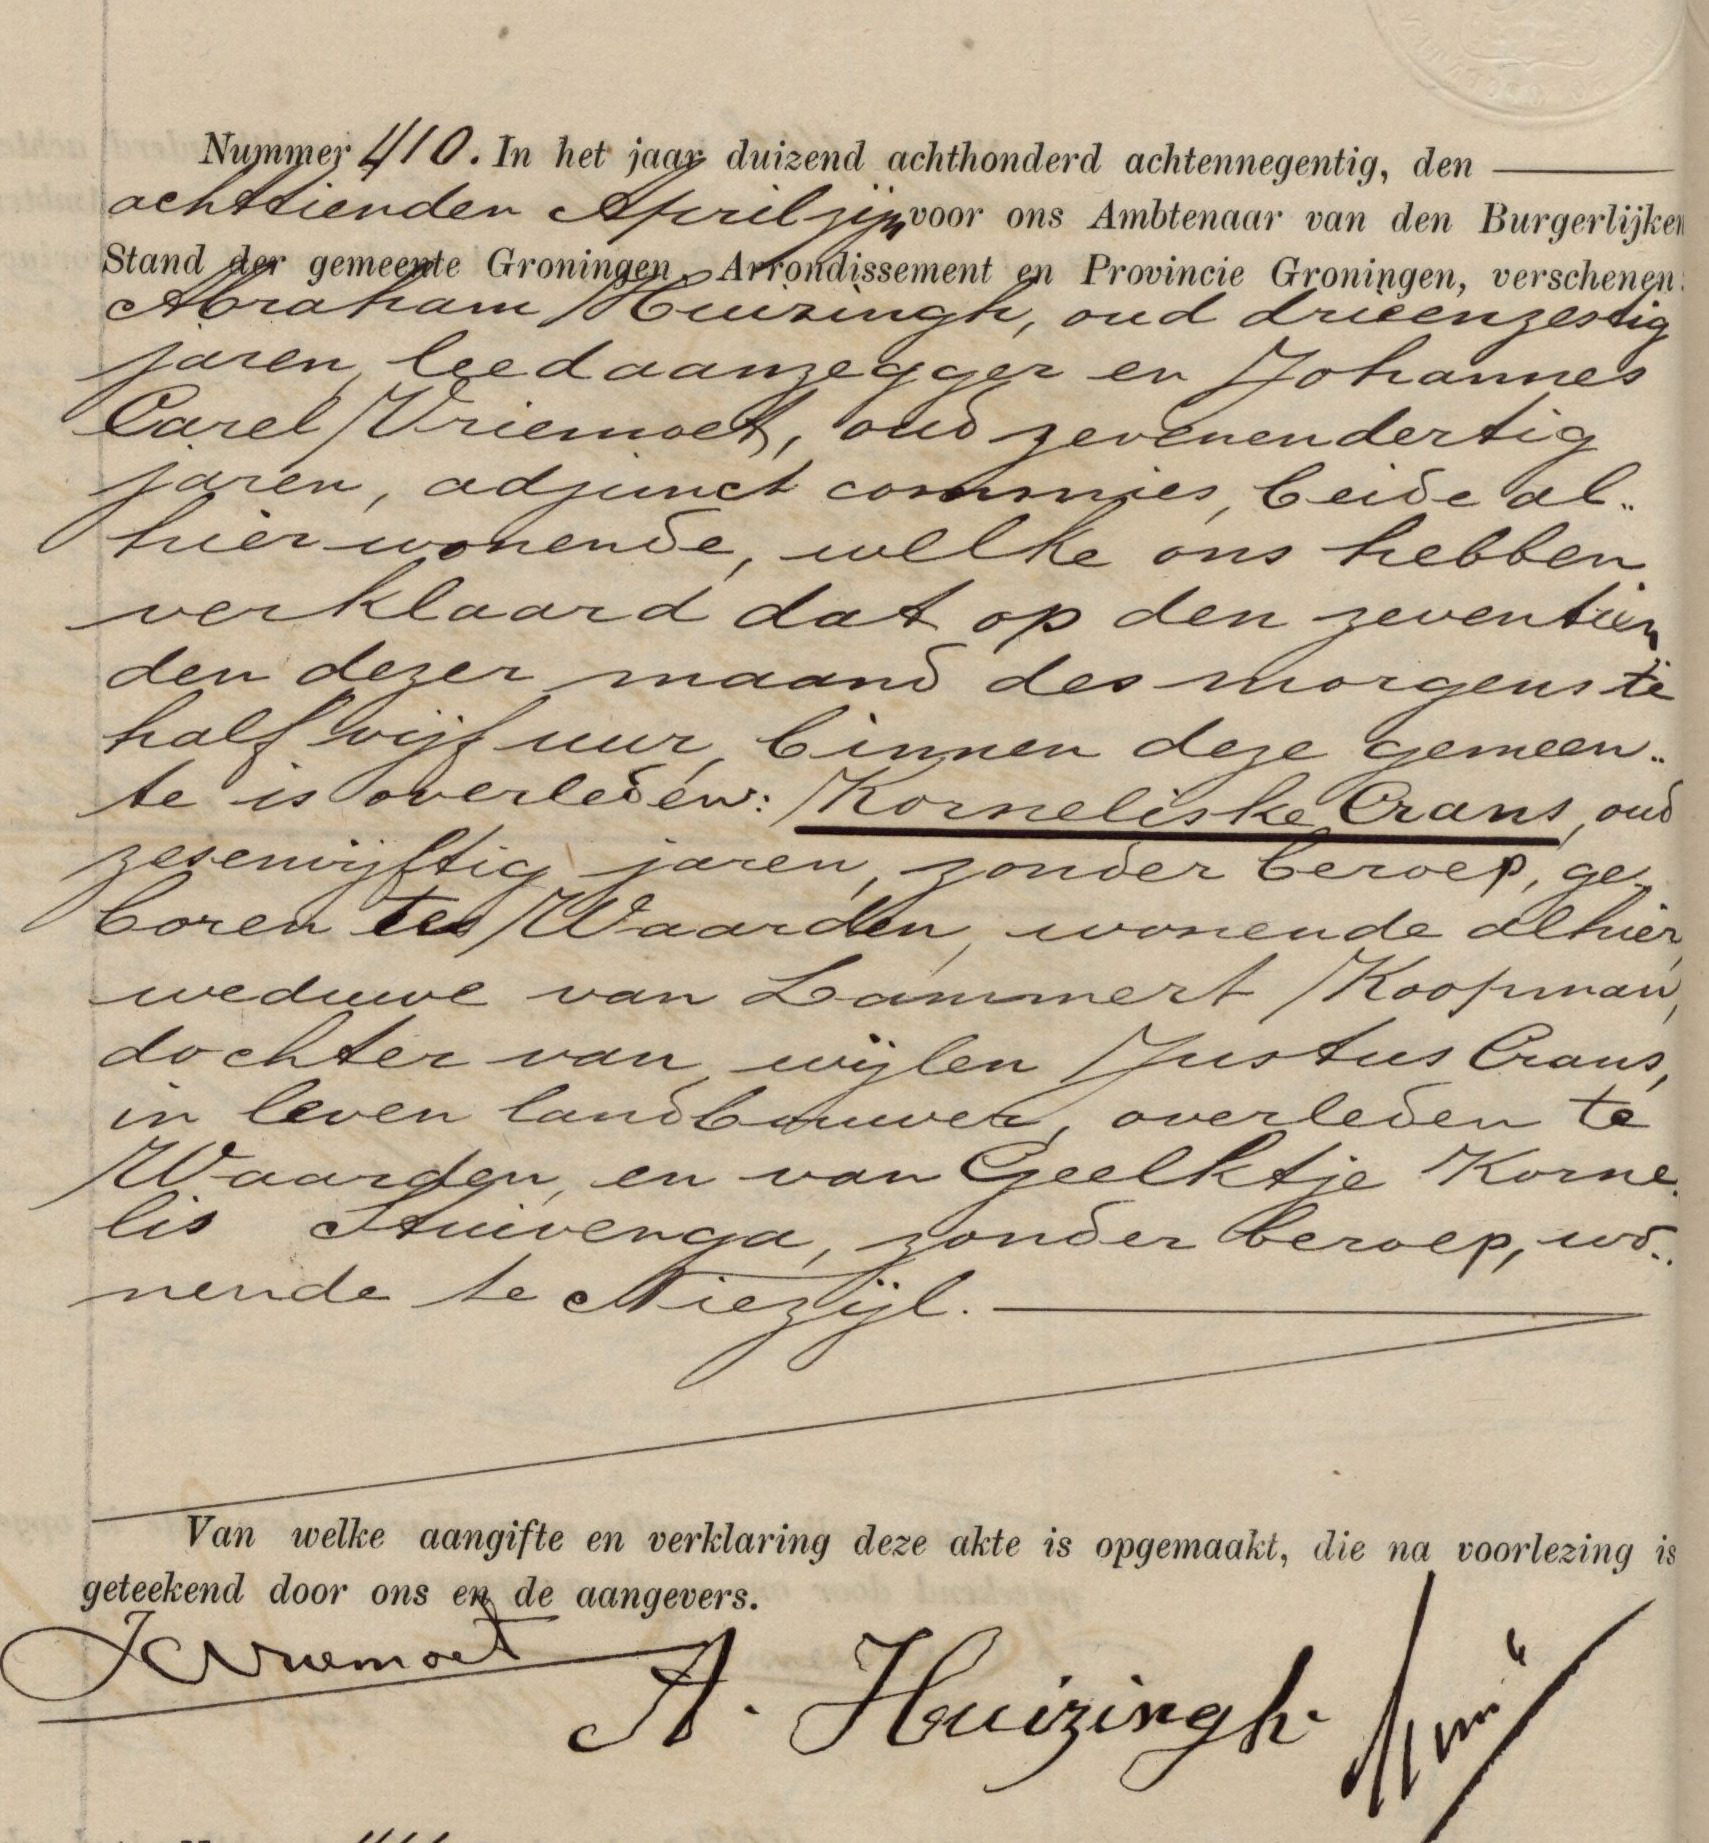 Nummer 410. In het jaar duizend achthonderd achtennegentig, den
achttienden April zijn voor ons Ambtenaar van den Burgerlijken
Stand der gemeente Groningen, Arrondissement en Provincie Groningen, verschenen:
Abraham Huizingh, oud drieenzestig
jaren, leedaanzegger en Johannes
Carel Vriemoet, oud zevenendertig
jaren, adjunct commies, beide al„
hier wonende, welke ons hebben
verklaard dat op den zeventien
den dezer maand des morgens te
half vijf uur, binnen deze gemeen„
te is overleden: Korneliske Crans, oud
zesenvijftig jaren, zonder beroep, ge„
boren te Waarden, wonende alhier,
weduwe van Lammert Koopman,
dochter van wijlen Justus Crans,
in leven landbouwer, overleden te
Waarden, en van Geelktje Korne„
lis Stuivenga, zonder beroep, wo„
nende te Niezijl.
Van welke aangifte en verklaring deze akte is opgemaakt, die na voorlezing is
geteekend door ons en de aangevers.
JCVriemoet
A. Huizingh.